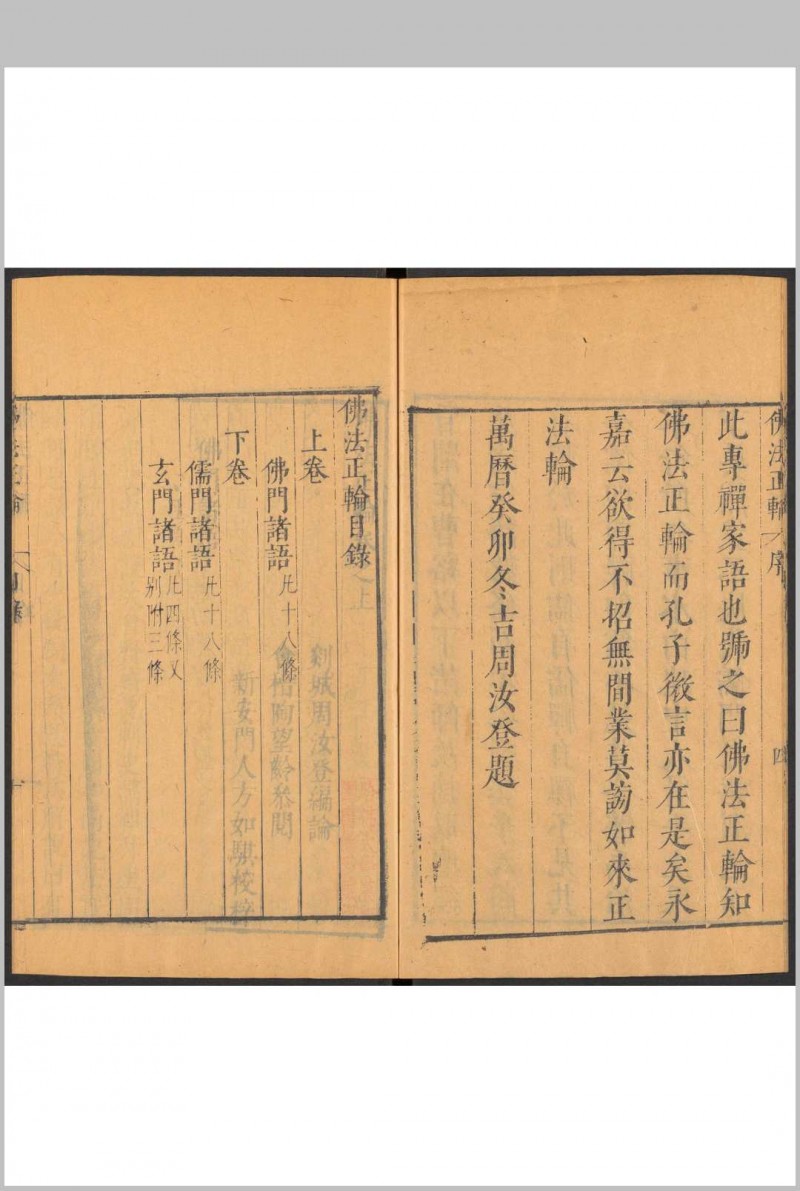 佛法正輪 序
四
此專禪家語也號之曰佛法正輪知
佛法正輪而孔子微言亦在是矣永
嘉云欲得不招無間業莫謗如來正
法輪
萬曆癸卯冬吉周汝登題
佛法正輪目錄
上卷
佛門諸語凡十八條
下卷
儒門諸語凡十八條
玄門諸語凡四條又
別附三條
剡城周汝登編論
望齡叅閱
新安門人方如騏校梓